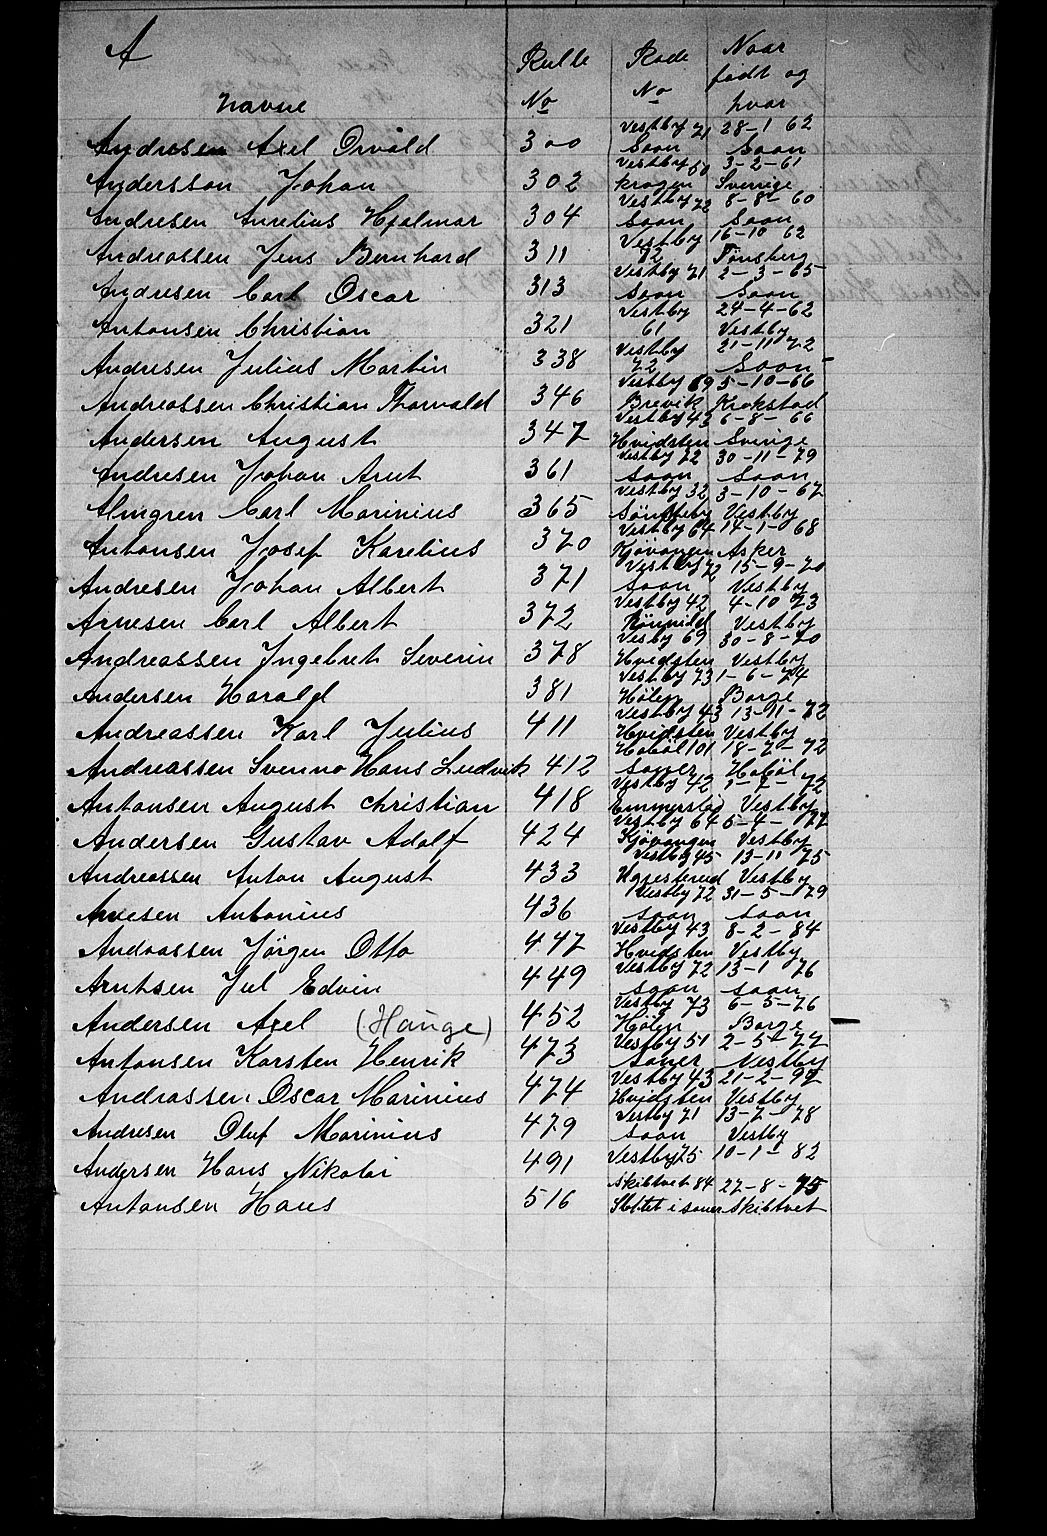 A
Rulle Rode Naar
No No født og
Navne hvor
Vestby 71 28-1 62
Andresen Axel Osvald 300 Soon Soon
Vestby 50 3-2-61
Andersson Johan 302 krogen Sverrige
Vestby 72 8-8-60
Andresen Aurelius Hjalmar 304 Soon Soon
Vestby 16-10 62
Andreassen Jens Bernhard 311 72 Tønsberg
Vestby 71 2-3-65
Andresen Carl Oscar 313 Soon Soon
Vestby 24-4-62
Antonsen Christian 321 61 Vestby
Vestby 21-11 72
Andresen Julius Martin 338 72 Soon
Vestby 69 5-10-66
Andreassen Christian Thorvald 346 Brevik Krokstad
Vestby 43 6-8-66
Andersen August 347 Hvidsten Sverige
Vestby 72 30-11-79
Andresen Johan Arnt 361 Soon Soon
Vestby 32 3-10-67
Almgren Carl Marinius 365 Sønsteby Vestby
Vestby 64 14-1-68
Antonsen Josef Karelius 370 Kjøvangen Asker
Vestby 72 15-9-70
Andresen Johan Albert 371 Soon Vestby
Vestby 42 4-10 73
Arnesen Carl Albert 372 Vestby
Vesby 69 30-8-70
Andreassen Ingebret Severin 378 Hvidsten Vestby
Vestby 73 1-6-74
Andersen Harald 381 Hølen Borge
Vestby 43 13-11-72
Andreassen Karl Julius 411 Hvidsten Vestby
Hobøl 101 18-7-72
Andreassen Svenno Hans Ludvik 412 Soner Hobøl
Vestby 42 1-7-72
Antonsen August Christian 418 Emmerstad Vestby
Vestby 64 5-4-77
Andersen Gustav Adolf 424 Kjøvangen Vestby
Vestby 45 13-11 75
Andreassen Anton August 433 Vestby
Vestby 72 31-5-79
Arnesen Antonius 436 Soon Soon
Vestby 43 8-2-84
Andreassen Jørgen Otto 447 Hvidsten Vestby
Vestby 72 13-1 76
Arntsen Jul Edvin 449 Soon Soon
Vestby 73 6-5-76
Andersen Axel (Hauge) 452 Hølen Borge
Vestby 51 2-5-77
Antonsen Karsten Henrik 473 Soner Vestby
Vestby 43 21-2-97
Andreassen Oscar Marinius 474 Hvidsten Vestby
Vestby 71 13-7-78
Andresen Oluf Marinius 479 Soon Vestby
Andersen Hans Nikolai 491 Vestby 75 10-1-82
Skibtvet 84 27-8-75
Antonsen Hans 516 Slottet i Soner Skibtvet